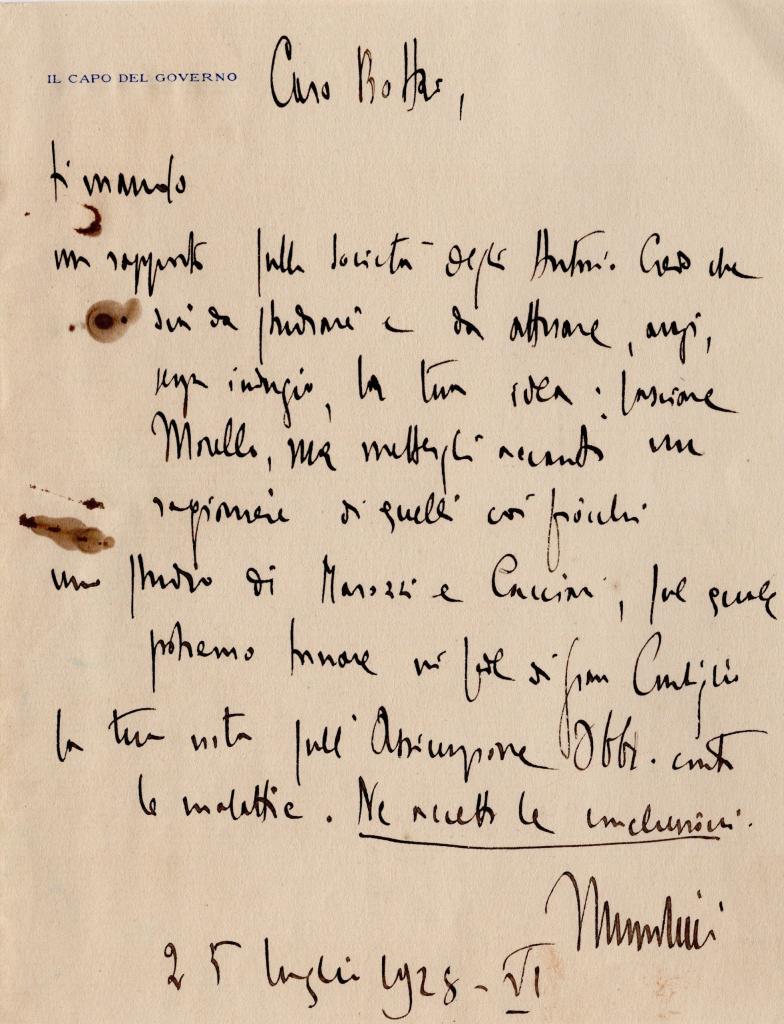 IL CAPO DEL GOVERNO
Caro Bottai,
ti mando
un rapporto sulla Società degli Autori. Credo che
sia da studiare e da attuare, anzi,
senza indugio, la tua idea: lasciare
Morello, ma mettergli accanto un
ragioniere di quelli coi fiocchi
uno studio di Marozzi e, sul quale
potremo tornare in sede di Gran Consiglio
la tua nota sull'Assicurazione Obbl. contro
le malattie. Ne accetto le conclusioni.
Mussolini
25 luglio 1928 - VI